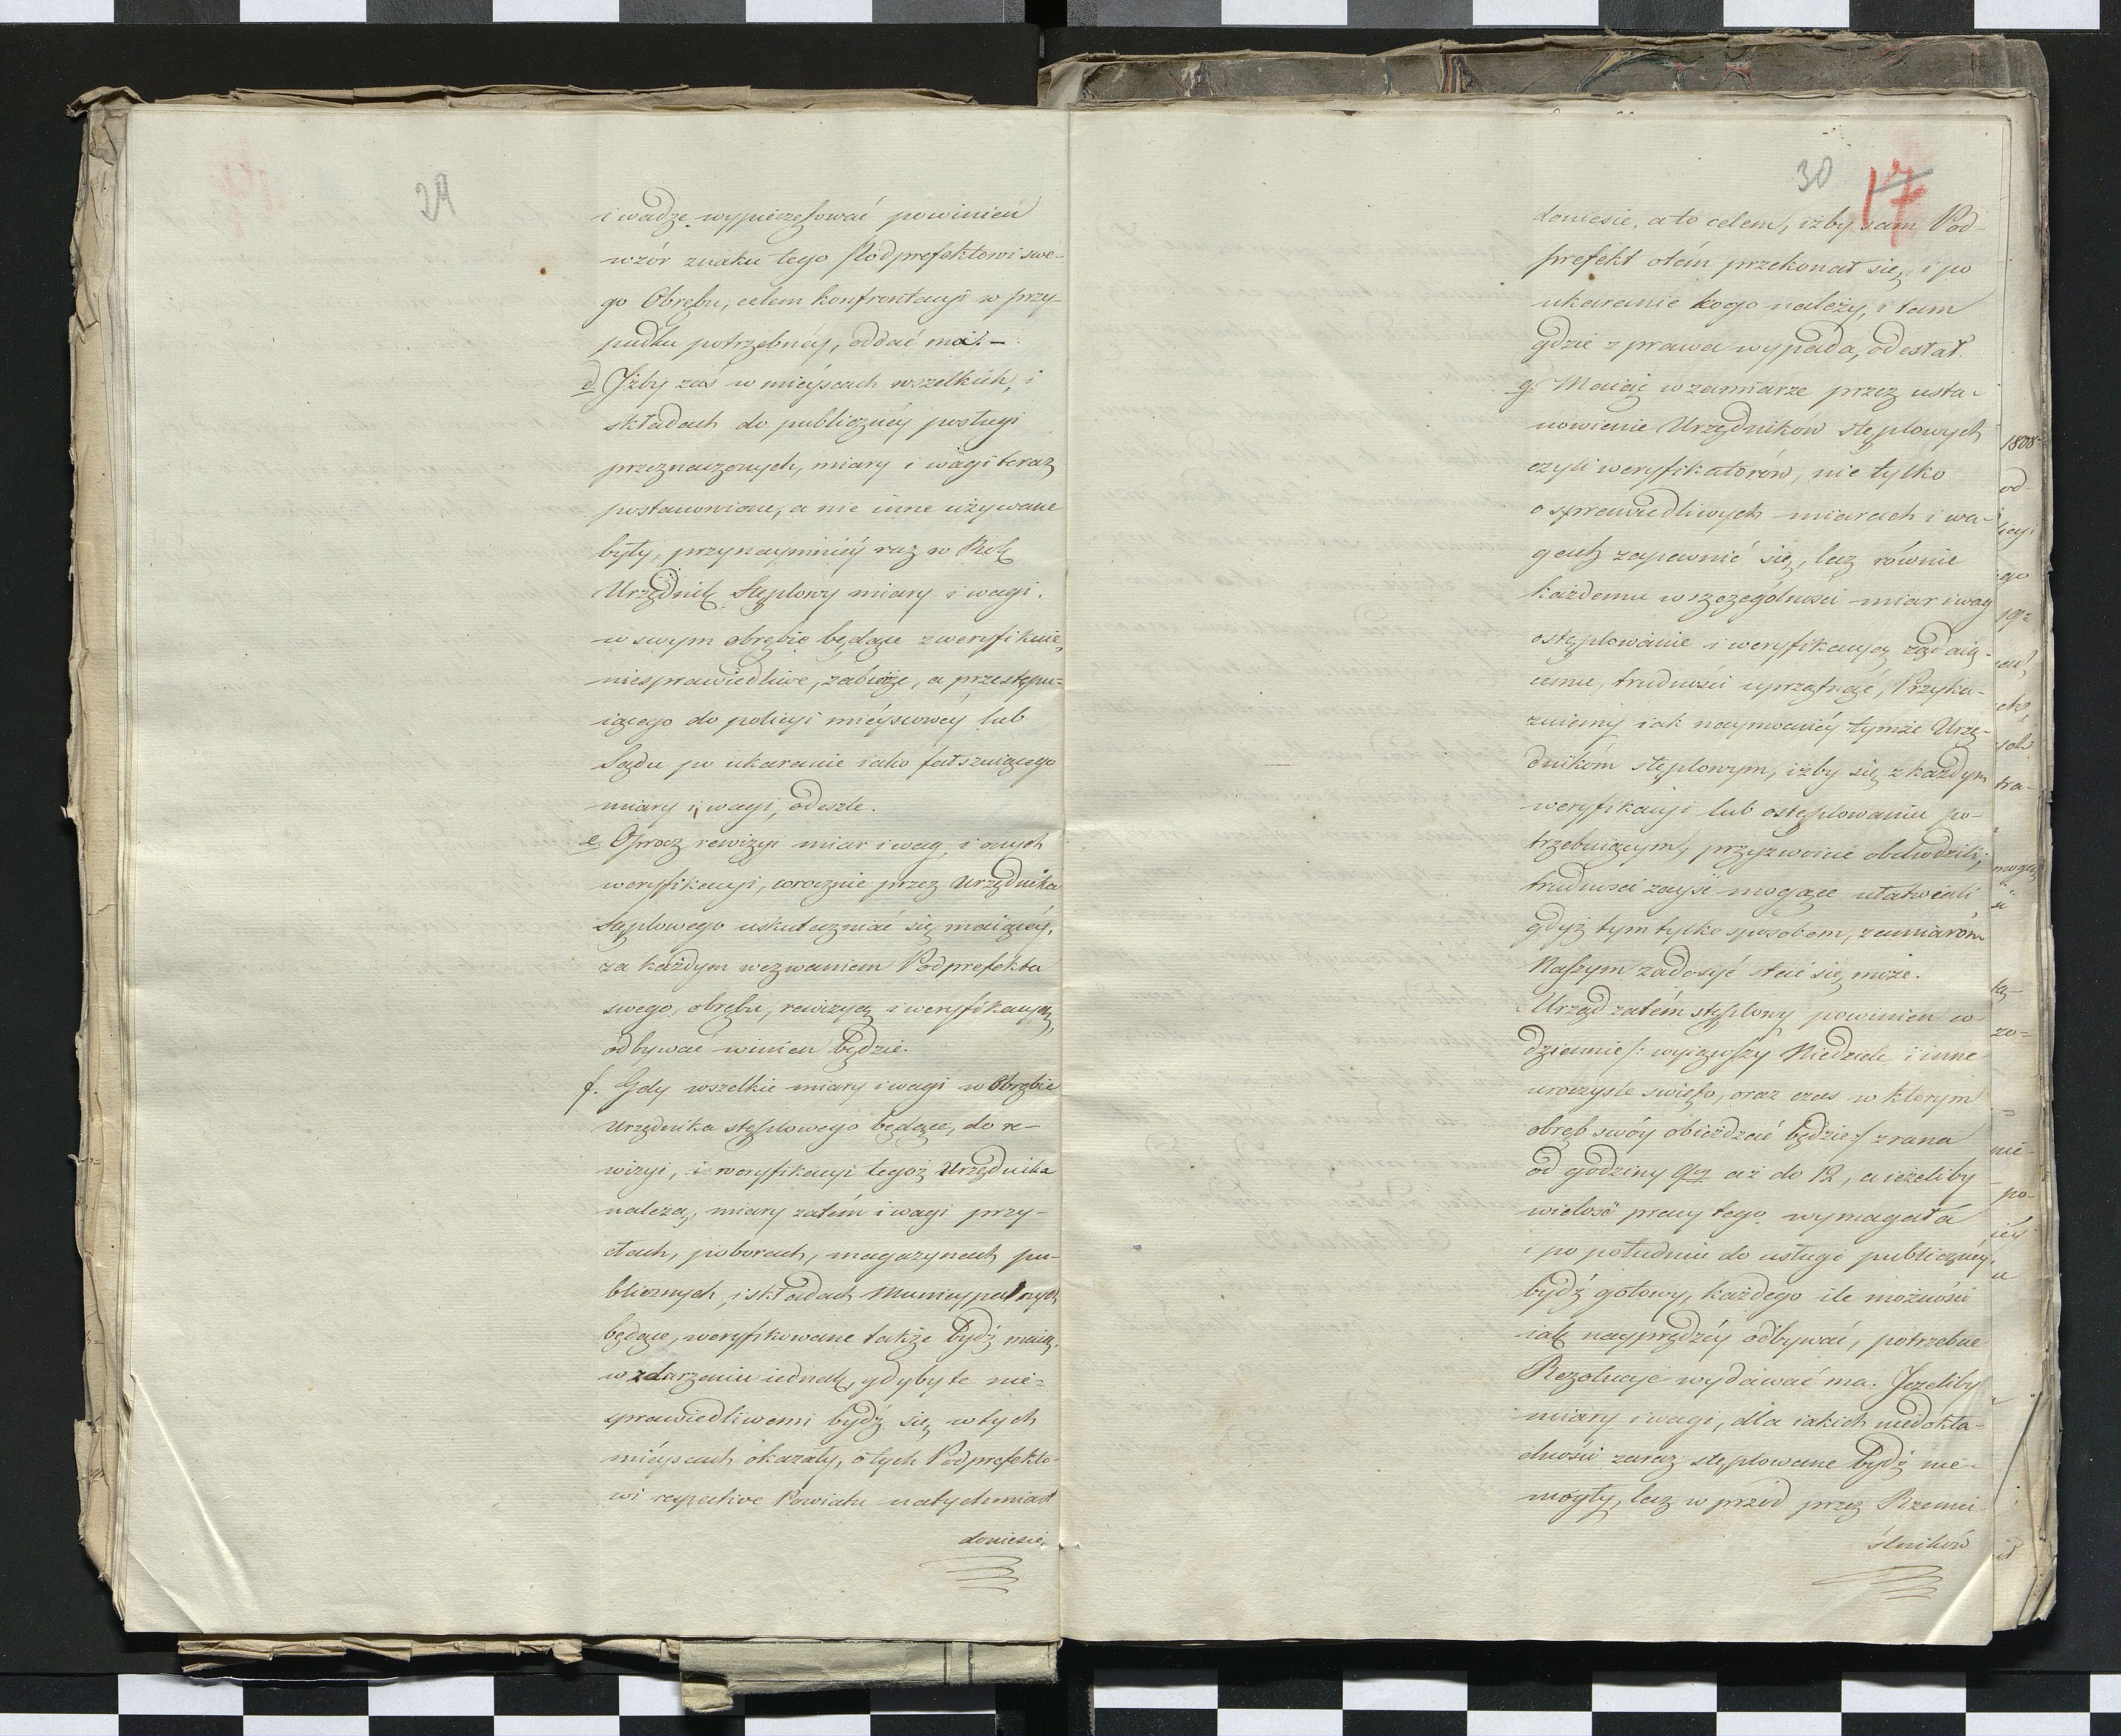 29
i wadze wypieczętować powinien
wzór znaku tego Podprefektowi swe-
go Obrębu, celem konfrontacyi w przy-
padku potrzebnéy, oddać ma. –
d. Jżby zaś w mieyscach wszelkich, i
składach do publicznéy posługi
przeznaczonych, miary i wagi teraz
postanowione, a nie inne używane
były, przynaymniéy raz w Rok
Urzędnik Stęplowy miary i wagi.
w swym obrębie będące zweryfikuie,
niesprawiedliwe, zabierze, a przestępu-
iącego do policyi mieyscowéy lub
Sądu po ukaranie iako fałszuiącego
miary i wagi, odeszle.
e. Oprocz rewizyi miar i wag, i onych
weryfikacyi, corocznie przez Urzędnika
stęplowego uskuteczniać się maiącéy,
za każdym wezwaniem Podprefekta
swego obrębu, rewizyą i weryfikacyą,
odbywać winien będzie.
f. Gdy wszelkie miary i wagi w Obrębie
Urzędnika stęplowego będące, do re-
wizyi, i weryfikacyi tegoż Urzędnika
należą, miary zatém i wagi przy
cłach, poborach, magazynach pu-
blicznych, i składach Municypalnych
będące, weryfikowane także bydź maią.
w zdarzeniu iednak, gdyby te nie-
sprawiedliwemi bydź się w tych
mieyscach okazały, o tych Podprefekto-
wi respective Powiatu natychmiast
doniesie,
30 17
doniesie, a to celem, iżby sam Pod-
prefekt o tém przekonał się, i po
ukaranie kogo należy, i tam
gdzie z prawa wypada, odesłał.
g. Maiąc w zamiarze przez usta-
nowienie Urzędników stęplowych
czyli weryfikatorów, nie tylko
o sprawiedliwych miarach i wa-
gach zapewnić się, lecz równie
każdemu w szczególności miar i wag
ostęplowanie i weryfikacyą żądaią-
cemu, trudności uprzątnąć, Przyka-
zuiemy iak naymocniéy tymże Urzę-
dnikom stęplowym, iżby się z każdym
weryfikacyi lub ostęplowaniu po-
trzebuiącym, przyzwoicie obchodzili,
trudności zayść mogące ułatwiali
gdyż tym tylko sposobem, zamiarom
Naszym zadosyć stać się może.
Urząd zatém stęplowy powinien co
dziennie /: wyiąwszy Niedziele i inne
uroczyste święta, oraz czas w którym
obręb swóy obieżdżać będzie :/ z rana
od godziny 9tey aż do 12, a ieżeliby
wielość pracy tego wymagała
i po południu do usługi publicznéy,
bydź gotowy, każdego ile możności
iak nayprędzéy odbywać, potrzebne
Rezolucye wydawać ma. Jeżeliby
miary i wagi, dla iakich niedokła-
dności zaraz stęplowane bydź nie-
mogły, lecz w przód przez Rzemie-
ślników
1808
od
go
mogą
tra-
zo=
nie-
po-